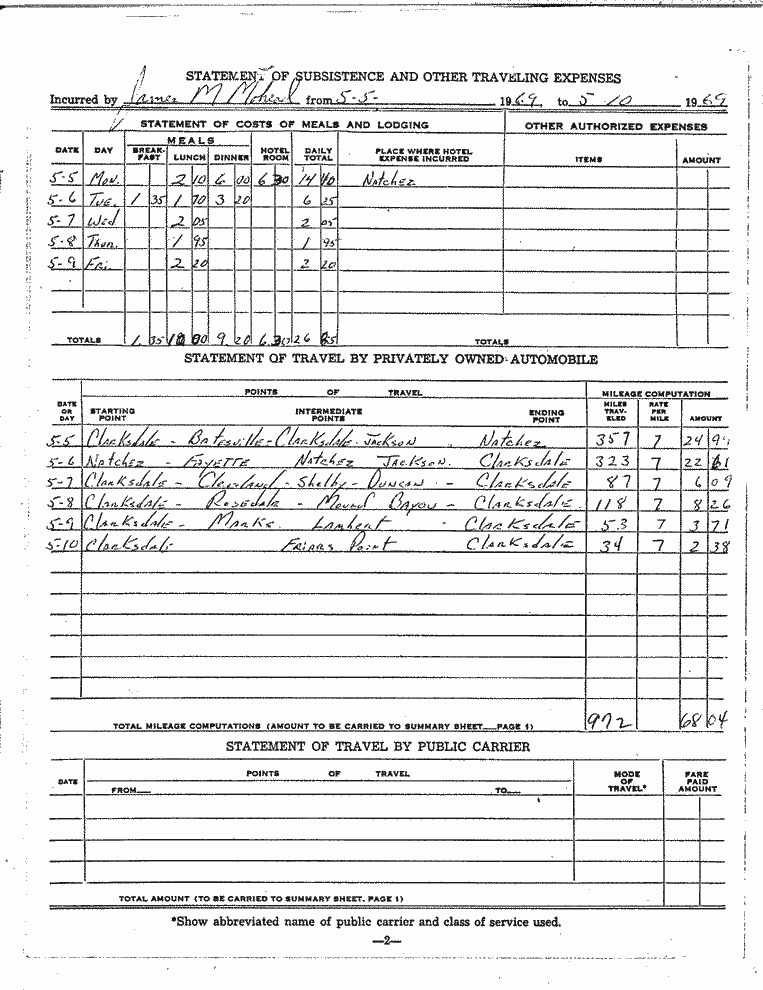 STATEMENT OF SUBSISTENCE AND OTHER TRAVELING EXPENSES
Incurred by James M Mohead from 5-5- 1969, to 5 10 1969
STATEMENT OF COSTS OF MEALS AND LODGING OTHER AUTHORIZED EXPENSES
DATE DAY MEALS BREAK-FAST LUNCH DINNER HOTEL ROOM DAILY TOTAL PLACE WHERE HOTEL EXPENSE INCURRED ITEMS AMOUNT
5-5 Mon. 2 10 6 00 6 30 14 40 Natchez
5-6 Tue. 1 35 1 70 3 20 6 25
5-7 Wed 2 05 2 05
5-8 Thon. 1 95 1 95
5-9 Fri. 2 20 2 20
TOTALS 1 35 10 00 9 20 6 30 26 85 TOTALS
STATEMENT OF TRAVEL BY PRIVATELY OWNED AUTOMOBILE
DATE OR DAY POINTS OF TRAVEL MILEAGE COMPUTATION
STARTING POINT INTERMEDIATE POINTS ENDING POINT MILES TRAV-ELED RATE PER MILE AMOUNT
5-5 Clarksdale - Batesville - Clarksdale - Jackson Natchez 357 7 24 99
5-6 Natchez - Fayette Natchez Jackson. Clarksdale 323 7 22 61
5-7 Clarksdale - Cleveland - Shelby - Duncan - Clarksdale 87 7 6 09
5-8 Clarksdale - Rosedale - Mound Bayou - Clarksdale. 118 7 8 26
5-9 Clarksdale - Marks Lambert - Clarksdale 53 7 3 71
5-10 Clarksdale Friars Point Clarksdale 34 7 2 38
TOTAL MILEAGE COMPUTATIONS (AMOUNT TO BE CARRIED TO SUMMARY SHEET PAGE 1) 972 68 04
STATEMENT OF TRAVEL BY PUBLIC CARRIER
DATE POINTS OF TRAVEL MODE OF TRAVEL* FARE PAID AMOUNT
FROM TO
TOTAL AMOUNT (TO BE CARRIED TO SUMMARY SHEET. PAGE 1)
*Show abbreviated name of public carrier and class of service used.
—2—